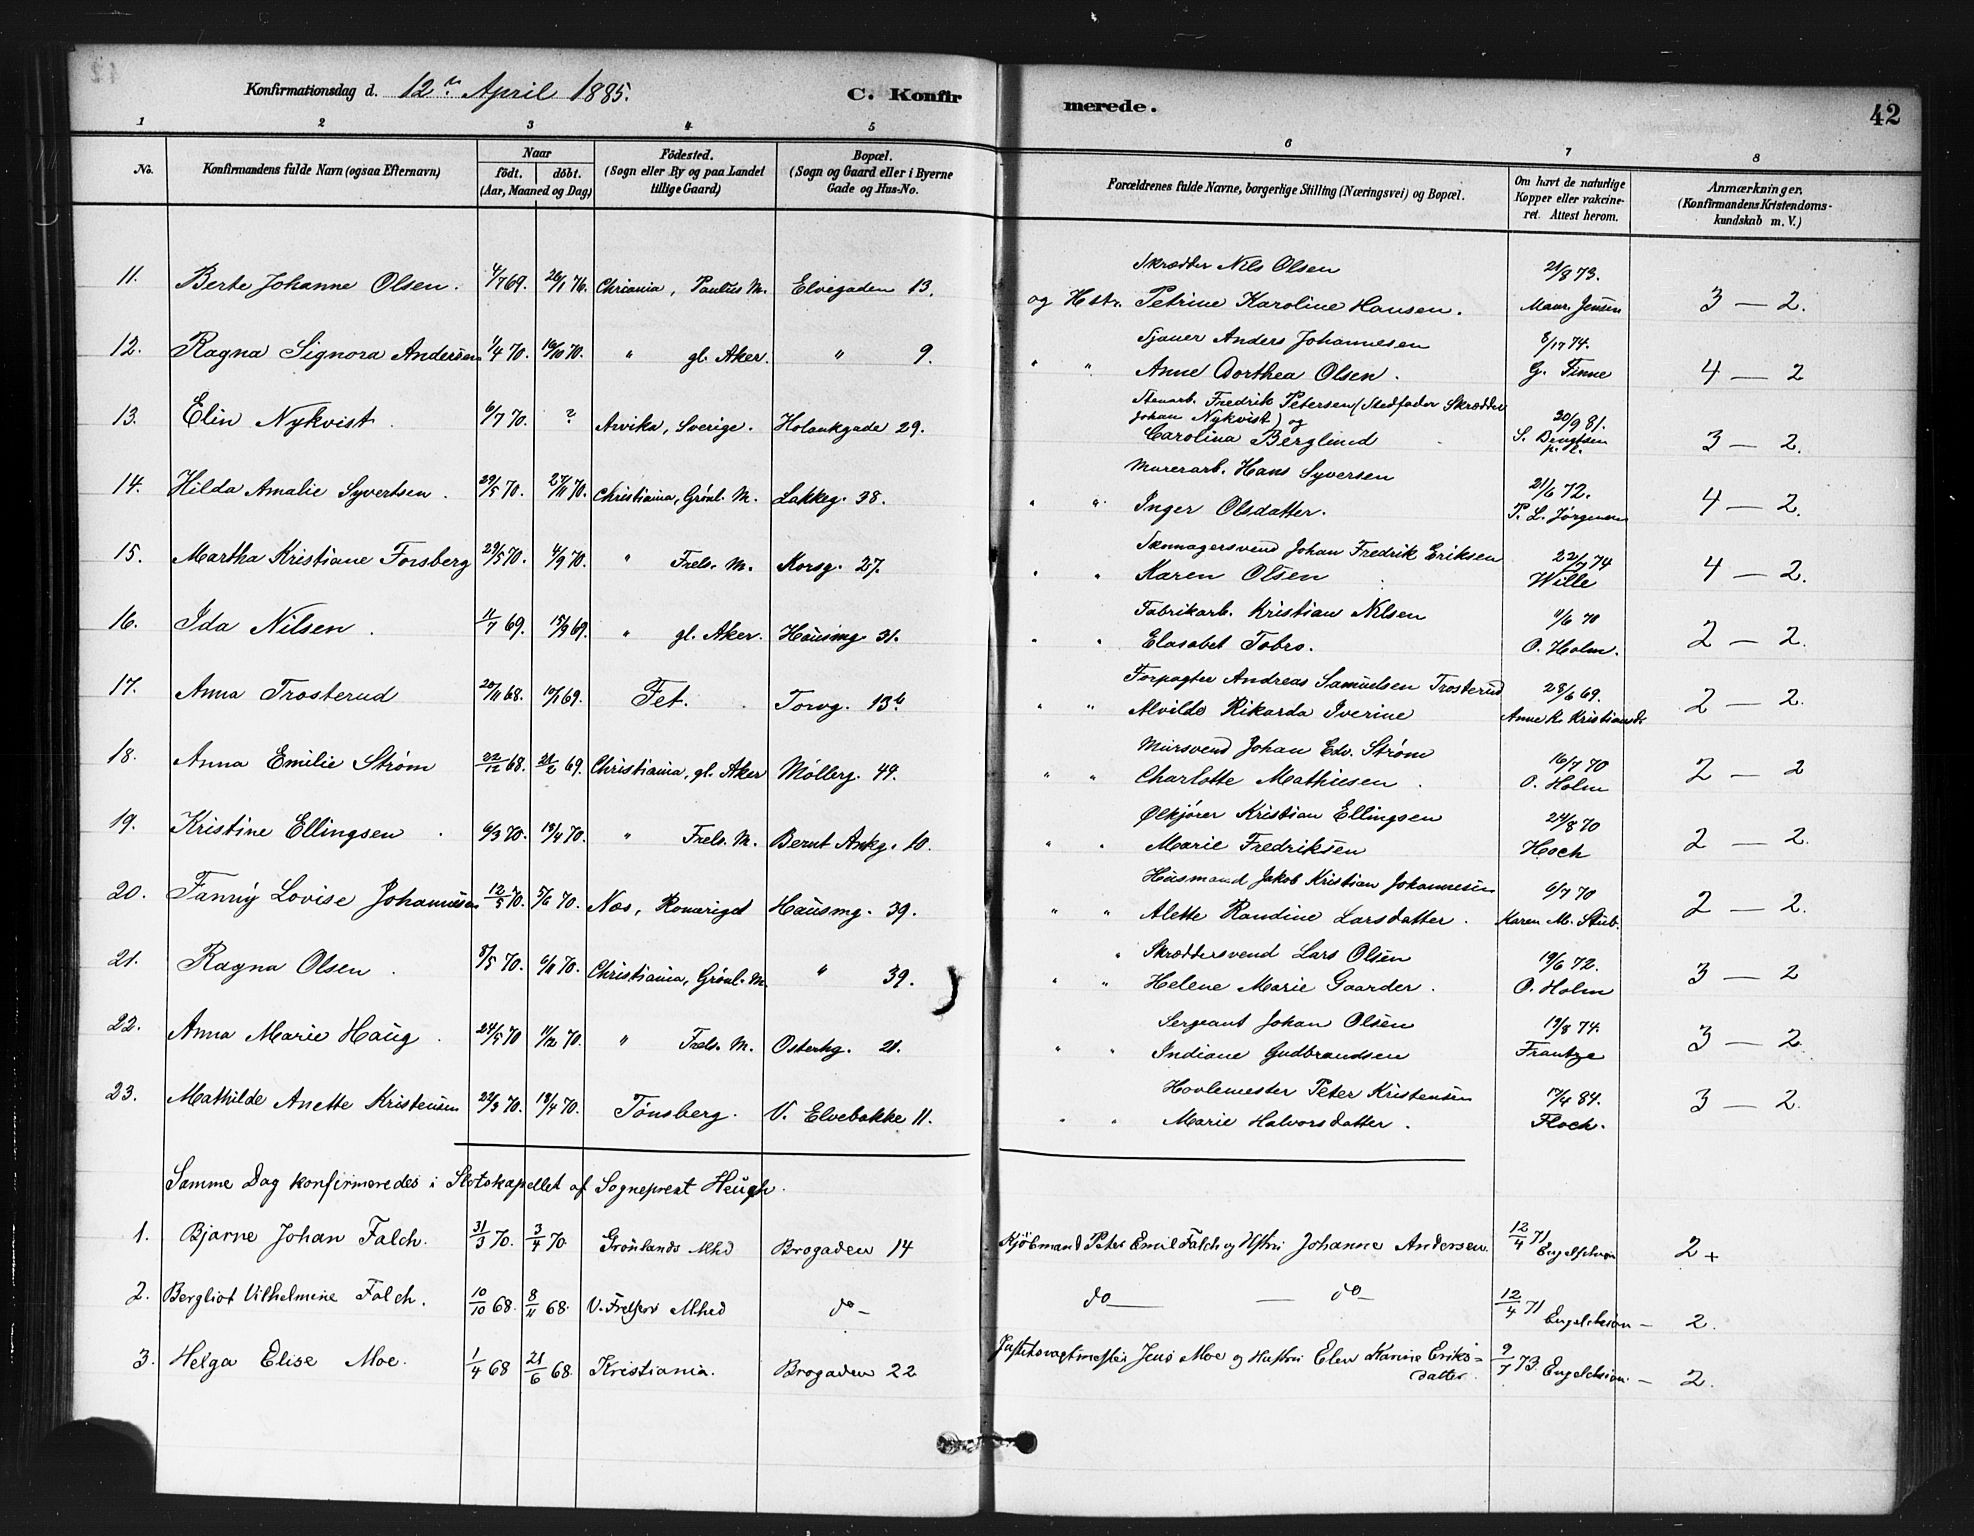 Konfirmationsdag d. 12te April 1885. C. Konfirmerede. 42
1 2 3 4 5 6 7 8
No. Konfirmandens fulde Navn (ogsaa Efternavn) Naar födt. döbt. (Aar, Maaned og Dag) Födested. (Sogn eller By og paa Landet tillige Gaard) Bopæl. (Sogn og Gaard eller i Byerne Gade og Hus-No. Forældrenes fulde Navne, borgerlige Stilling (Næringsvei) og Bopæl. Om havt de naturlige Kopper eller vakcineret. Attest herom. Anmærkninger. (Konfirmandens Kristendomskundskab m. V.)
11. Berte Johanne Olsen. 4/7 69. 26/1 76. Chriania, Paulus M. Elvegaden 13. Skrædder Nils Olsen 21/8 73.
og Hstr. Petrine Karoline Hansen. Maur. Jensen 3 — 2.
12. Ragna Signora Andersen 1/4 70. 19/10 70. " gl. Aker. " 9. Sjauer Anders Johannesen 8/12 74.
" " Anne Dorthea Olsen. G. Finne 4 — 2
13. Elin Nykvist. 6/7 70. ? Arvika, Sverige. Holankgade 29. Stenarb. Fredrik Petersen (Stedfader Skrædder
Johan Nykvist) og 30/9 81.
Carolina Berglund S. Bengtsen 3 — 2.
14. Hilda Amalie Syvertsen. 29/5 70. 27/11 70. Christiania, Grønl. M. Lakkeg. 38. Murerarb. Hans Syversen 21/6 72.
" " Inger Olsdatter. P. L. Jørgensen 4 — 2.
15. Martha Kristiane Forsberg 29/5 70. 4/9 70. " Frels. M. Korsg. 27. Skomagersvend Johan Fredrik Eriksen 22/9 74
" " Karen Olsen Wille 4 — 2.
16. Ida Nilsen. 11/7 69. 15/9 69. " gl. Aker. Hausmg. 31. Fabrikarb. Kristian Nilsen 11/6 70
" " Elasabet Tobro. O. Holm. 2 — 2.
17. Anna Trosterud 20/11 68. 19/1 69. Fet. Torvg. 13b Forpagter Andreas Samuelsen Trosterud 28/6 69.
" " Alvilde Rikarda Iverine Anne K. Kristiansd. 2 — 2.
18. Anna Emilie Strøm 22/12 68. 21/2 69. Christiania, gl. Aker Møllerg. 49. Mursvend Johan Edv. Strøm 16/7 70
" " Charlotte Mathiesen. O. Holm 2 — 2
19. Kristine Ellingsen. 6/3 70. 18/4 70. " Frels. M. Bernt Ankg. 10. Ølkjører Kristian Ellingsen 24/8 70
" " Marie Fredriksen Hoch 2 — 2.
20. Fanny Lovise Johannesen 12/5 70. 5/6 70. Næs, Romeriget Hausmg. 39. Husmand Jakob Kristian Johannesen 6/7 70
" " Alette Randine Larsdatter. Karen M. Stub. 2 — 2.
21. Ragna Olsen. 8/5 70. 6/11 70. Christiania, Grønl. M. " 39. Skræddersvend Lars Olsen 19/6 72.
" " Helene Marie Gaarder. O. Holm 3 — 2
22. Anna Marie Haug. 24/5 70 11/12 70. " Frels. M. Osterhg. 21. Sergeant Johan Olsen 19/8 74.
" " Indiane Gudbrandsen Frantze 3 — 2
23. Mathilde Anette Kristensen 22/3 70. 18/4 70. Tønsberg. V. Elvebakke 11. Hovlemester Peter Kristensen 17/4 84.
" " Marie Halvorsdatter. Floch. 3 — 2.
Samme Dag konfirmeredes i Slotskapellet af Sogneprest Heugh.
1. Bjarne Johan Falch. 31/3 70. 3/4 70 Grønlands Mhd Brogaden 14 Kjöbmand Peter Emil Falch og Hstri Johanne Andersen. 12/4 71 Engelschiøn 2+
2. Bergliot Vilhelmine Falch. 10/10 68. 8/11 68. V. Frelsers Mhed do — do — do — 12/4 71 Engelschiøn — 2.
3. Helga Elise Moe. 1/4 68 21/6 68. Kristiania. Brogaden 22 Justitsvagtmester Jens Moe og Hustri Elen Karine Eriksdatter. 9/7 73. Engelchiøn. — 2.